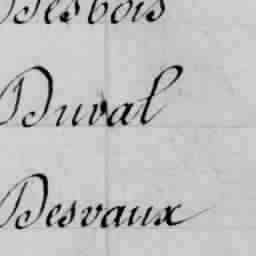 Desbois
Duval
Desvaux